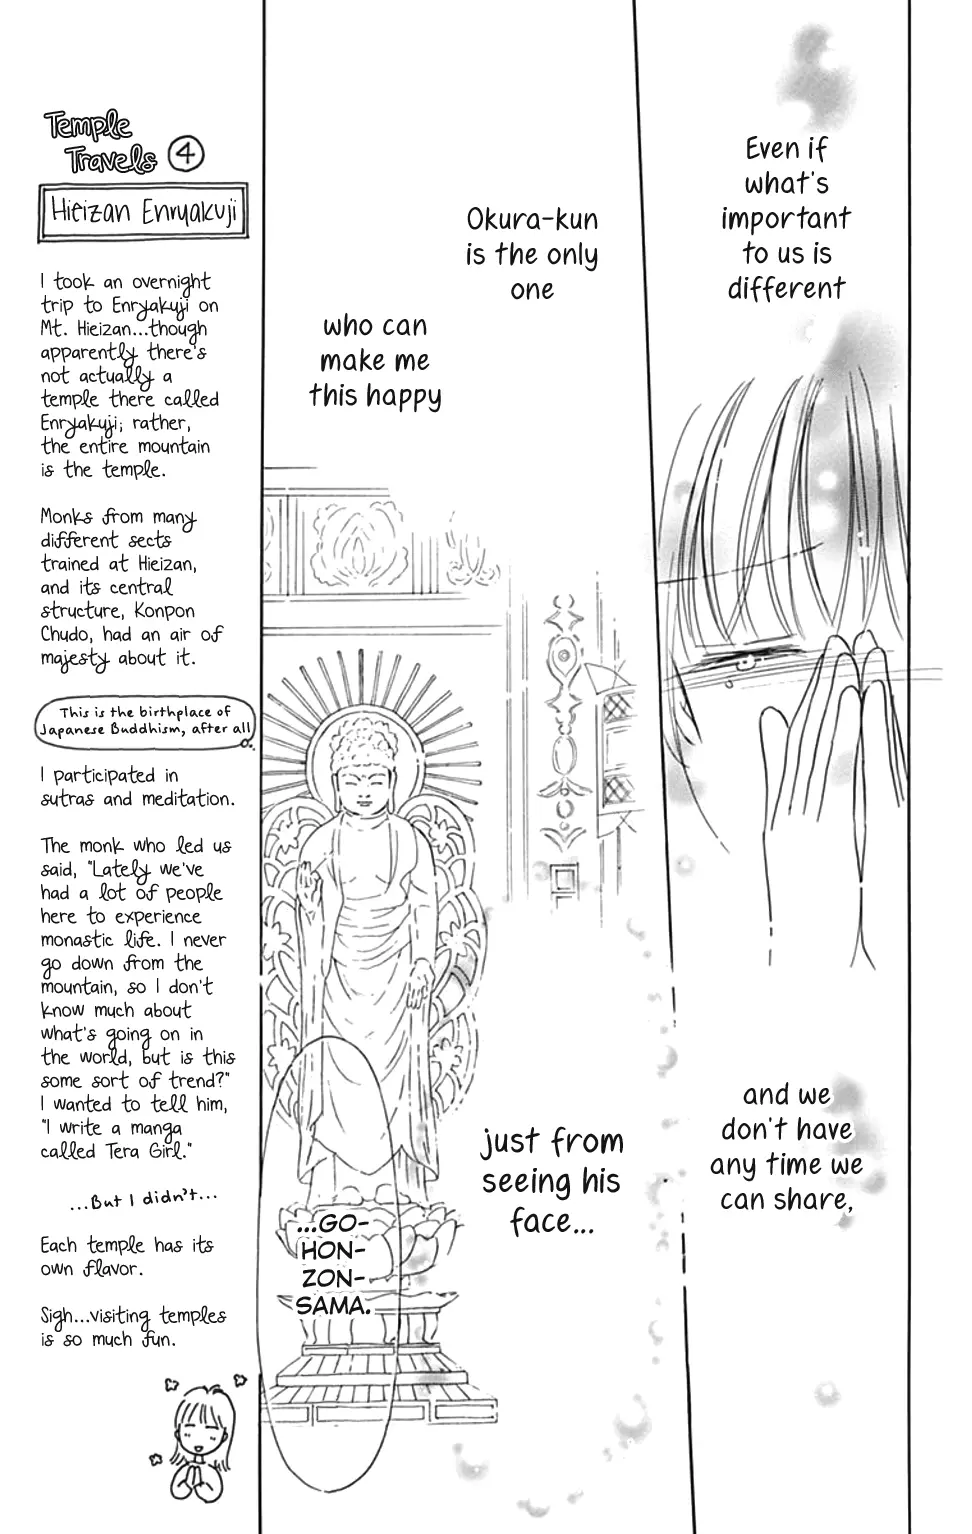 Even if
what's
important
to us is
different
and we
don't have
any time we
can share,
Okura-kun
is the only
one
who can
make me
this happy
just from
seeing his
face...
...GO-
HON-
ZON-
SAMA.
Temple
Travels ④
Hieizan Enryakuji
I took an overnight
trip to Enryakuji on
Mt. Hieizan...though
apparently there's
not actually a
temple there called
Enryakuji; rather,
the entire mountain
is the temple.
Monks from many
different sects
trained at Hieizan,
and its central
structure, Konpon
Chudo, had an air of
majesty about it.
This is the birthplace of
Japanese Buddhism, after all
I participated in
sutras and meditation.
The monk who led us
said, "Lately we've
had a lot of people
here to experience
monastic life. I never
go down from the
mountain, so I don't
know much about
what's going on in
the world, but is this
some sort of trend?"
I wanted to tell him,
"I write a manga
called Tera Girl."
...But I didn't...
Each temple has its
own flavor.
Sigh...visiting temples
is so much fun.